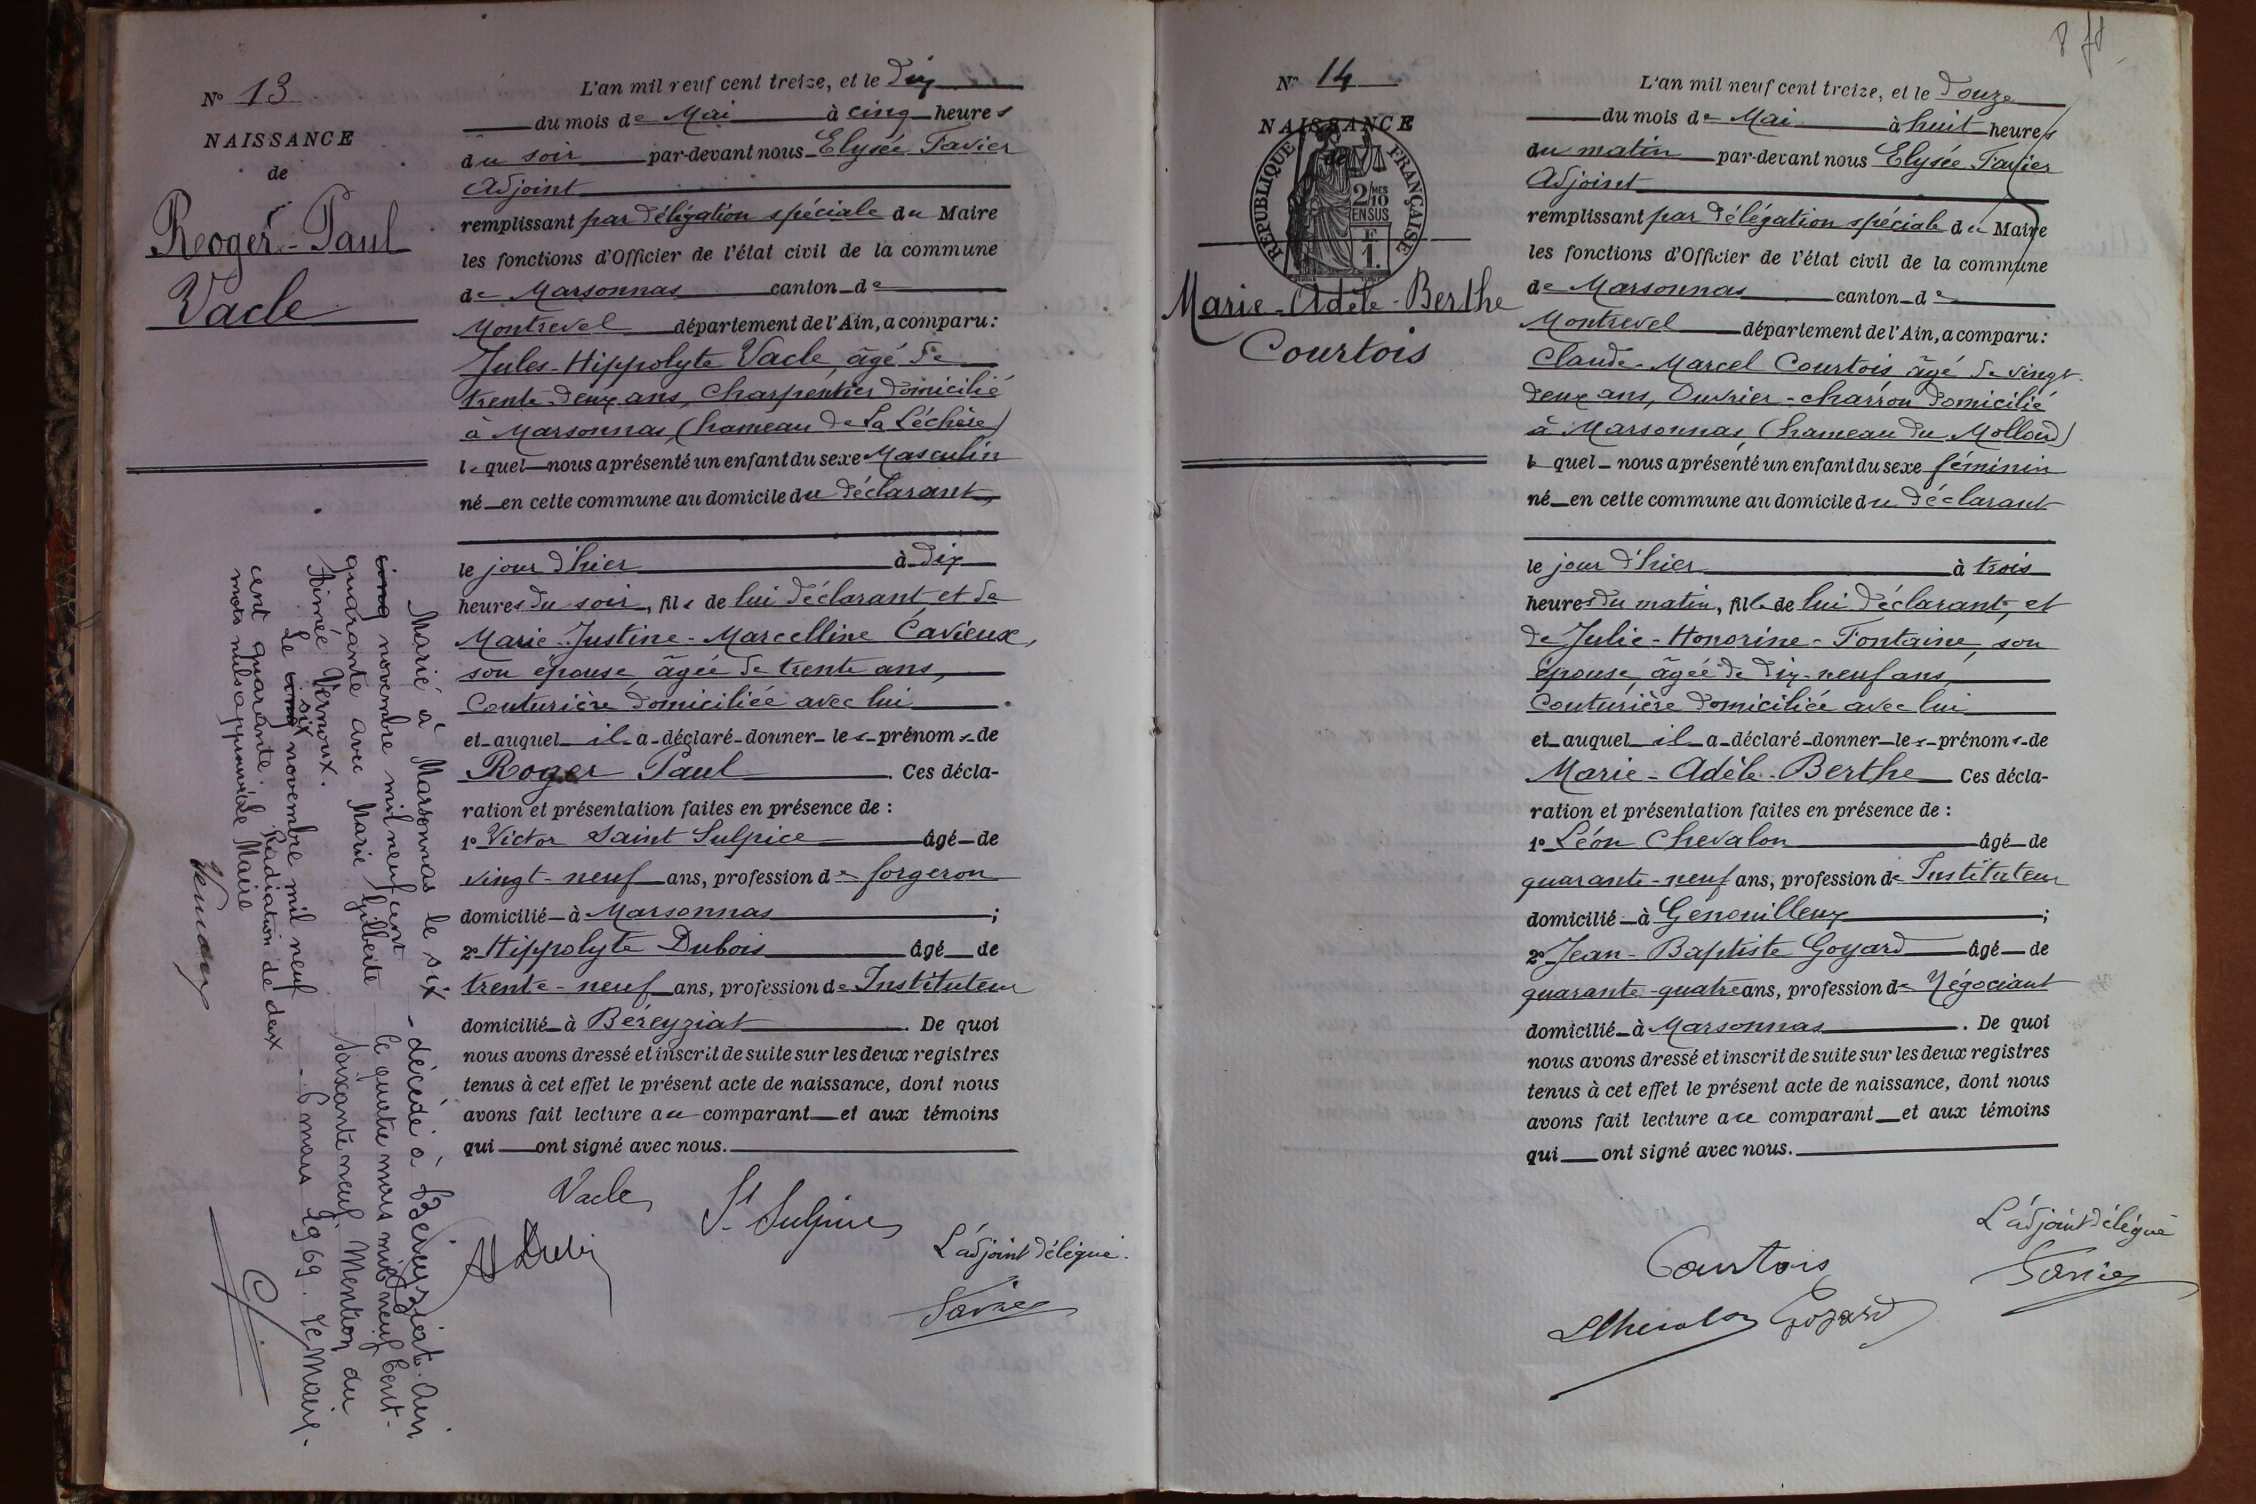 N° 13
NAISSANCE
de
Roger-Paul
Vacle
L'an mil neuf cent treize, et le dix
du mois de Mai à cinq heures
du soir par-devant nous Elysée Favier
Adjoint
remplissant par délégation spéciale du Maire
les fonctions d'Officier de l'état civil de la commune
de Marsonnas canton de
Montrevel département de l'Ain, a comparu:
Jules-Hippolyte Vacle, âgé de
trente-deux ans, charpentier domicilié
à Marsonnas, (hameau de La Léchère)
lequel nous a présenté un enfant du sexe Masculin
né en cette commune au domicile du déclarant,
le jour d'hier à dix
heures du soir, fils de lui déclarant et de
Marie-Justine-Marcelline Cavieux,
son épouse, âgée de trente ans,
Couturière domiciliée avec lui
et auquel il a déclaré donner les prénoms de
Roger Paul. Ces décla-
ration et présentation faites en présence de :
1° Victor Saint Sulpice âgé de
vingt-neuf ans, profession de forgeron
domicilié à Marsonnas ;
2° Hippolyte Dubois âgé de
trente-neuf ans, profession de Instituteur
domicilié à Béreyziat. De quoi
nous avons dressé et inscrit de suite sur les deux registres
tenus à cet effet le présent acte de naissance, dont nous
avons fait lecture au comparant et aux témoins
qui ont signé avec nous.
Vacle St Sulpice
L'adjoint délégué.
Favier
Marié à Marsonnas le six
cinq novembre mil neuf cent
quarante avec Marie Gilberte
Aimée Vernoux.
Le cinq six novembre mil neuf
cent quarante. Radiation de deux
mots nuls approuvée Le Maire
décédé à Béreyziat-Ain
le quatre mars mil neuf cent-
soixante neuf. Mention du
6 mars 1969. Le Maire.
N° 14
NAISSANCE
de
REPUBLIQUE FRANÇAISE
2/10 MES
EN SUS
F
1.
Marie-Adèle-Berthe
Courtois
L'an mil neuf cent treize, et le douze
du mois de Mai à huit heures
du matin par-devant nous Elysée Favier
Adjoint
remplissant par délégation spéciale du Maire
les fonctions d'Officier de l'état civil de la commune
de Marsonnas canton de
Montrevel département de l'Ain, a comparu:
Claude-Marcel Courtois âgé de vingt-
deux ans, Ouvrier-charron domicilié
à Marsonnas, (hameau du Mollard)
lequel nous a présenté un enfant du sexe féminin
né en cette commune au domicile du déclarant
le jour d'hier à trois
heures du matin, fille de lui déclarant, et
de Julie-Honorine-Fontaine, son
épouse, âgée de dix-neuf ans
Couturière domiciliée avec lui
et auquel il a déclaré donner les prénoms de
Marie-Adèle-Berthe Ces décla-
ration et présentation faites en présence de :
1° Léon Chevalon âgé de
quarante-neuf ans, profession de Instituteur
domicilié à Génouilleux ;
2° Jean-Baptiste Goyard âgé de
quarante-quatre ans, profession de Négociant
domicilié à Marsonnas. De quoi
nous avons dressé et inscrit de suite sur les deux registres
tenus à cet effet le présent acte de naissance, dont nous
avons fait lecture au comparant et aux témoins
qui ont signé avec nous.
L'adjoint délégué
Courtois Favier
LChevalon Goyard